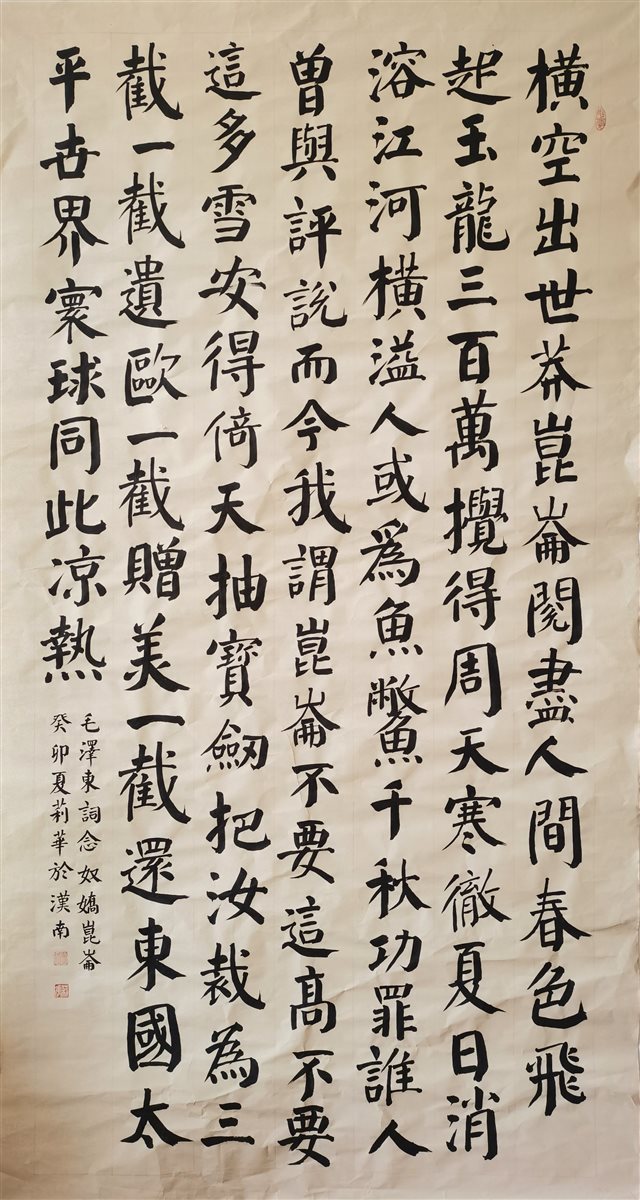 橫空出世莽崑崙閱盡人間春色飛
起玉龍三百萬攪得周天寒徹夏日消
溶江河橫溢人或爲魚鱉千秋功罪誰人
曾與評說而今我謂崑崙不要這高不要
這多雪安得倚天抽寶劒把汝裁為三
截一截遺歐一截贈美一截還東國太
平世界寰球同此凉熱
毛澤東詞念奴嬌崑崙
癸卯夏莉華於漢南